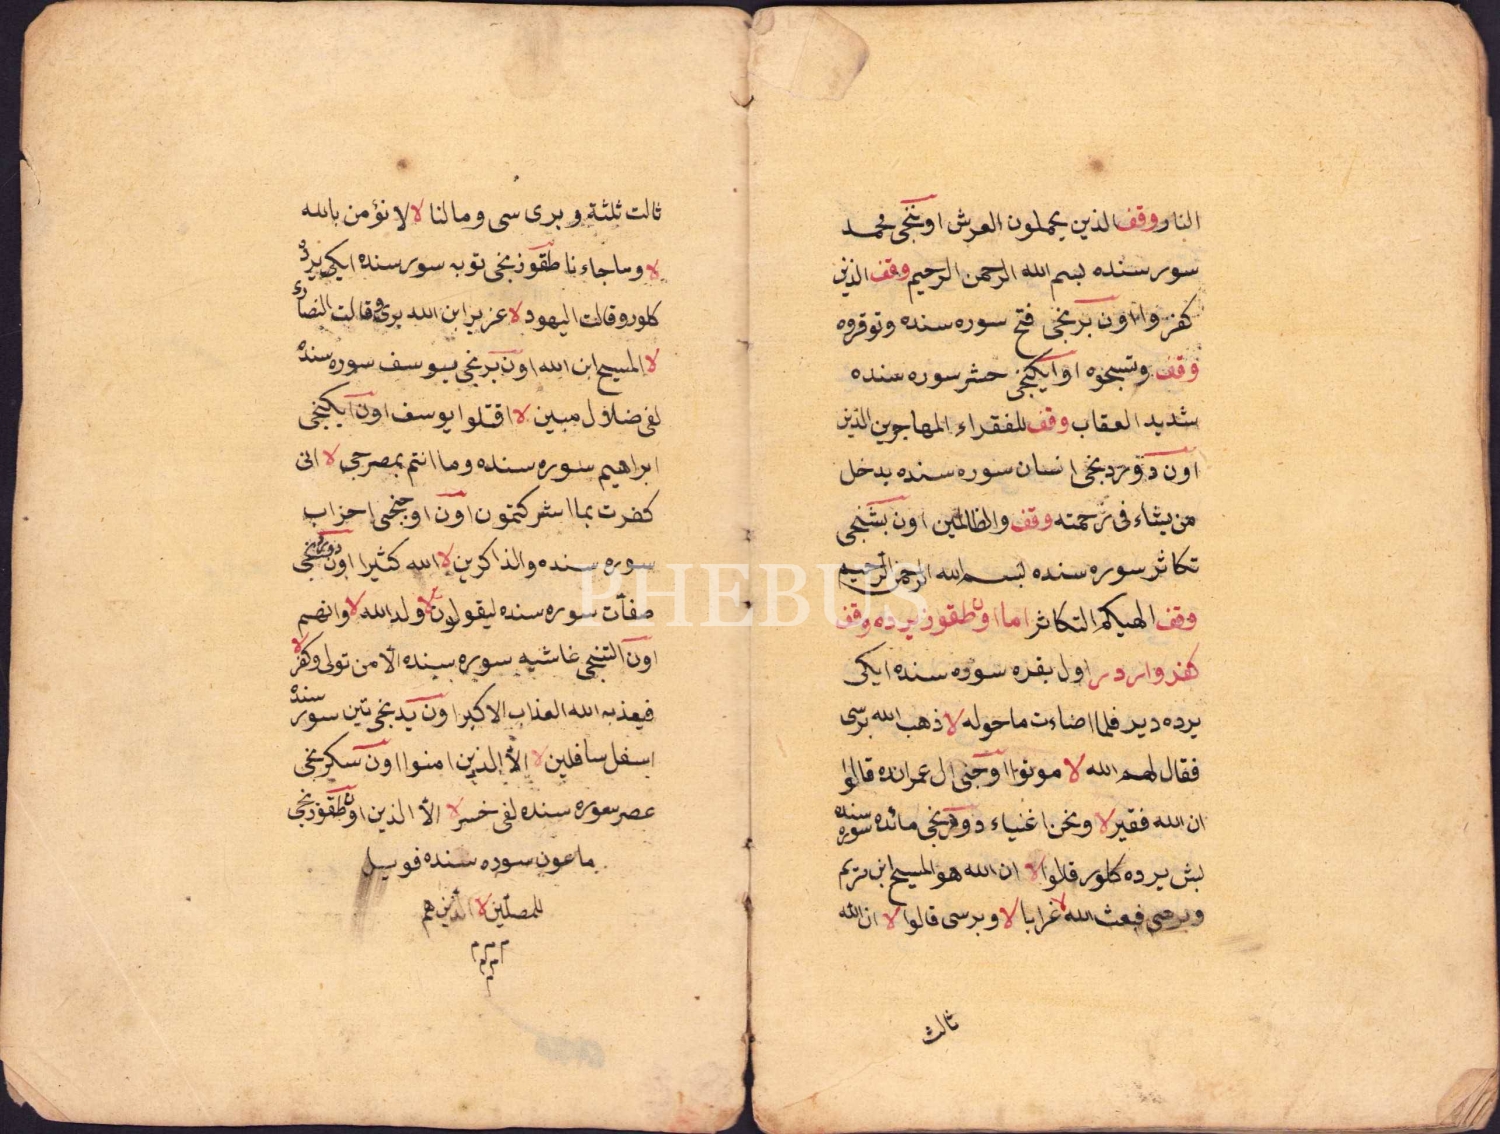 النار وقف الذين يحملون العرش اوننجى محمد
سورسنده بسم الله الرحمن الرحيم وقف الذين
كفروا اون برنجى فتح سوره سنده وتوقروه
وقف وتسبحوه اون ايكنجى حشر سوره سنده
شديد العقاب وقف للفقراء المهاجرين الذين
اون دوردنجى انسان سوره سنده يدخل
من يشاء فى رحمته وقف والظالمين اون بشنجى
تكاثر سوره سنده بسم الله الرحمن الرحيم
وقف الهيكم التكاثر اما اون طقوز يرده وقف
كفر واردر اول بقره سوره سنده ايكى
يرده دير فلما اضاءت ماحوله لا ذهب الله برسى
فقال لهم الله لا موتوا اوجنجى ال عمرانده قالوا
ان الله فقير لا ونحن اغنياء دوردنجى مائده سوره سنده
بش يرده كلور قالوا لا ان الله هو المسيح ابن مريم
وبرسى فبعث الله لا غرابا لا وبرسى قالوا لا ان الله
ثالث
ثالث ثلثة وبرى سى ومالنا لا لا نؤمن بالله
لا وماجاءنا طقوزنجى توبه سورسنده ايكى يرده
كلور وقالت اليهود لا عزير ابن الله برى وقالت النصارى
لا المسيح ابن الله اون برنجى يوسف سوره سنده
لفى ضلال مبين لا اقتلوا يوسف اون ايكنجى
ابراهيم سوره سنده وما انتم بمصرخى لا انى
كفرت بما اشركتمون اون اوجنجى احزاب
سوره سنده والذاكرين لا الله كثيرا اون دوردنجى
صفآت سوره سنده ليقولون لا ولد الله لا وانهم
اون التنجى غاشيه سوره سنده الا من تولى وكفر لا
فيعذبه الله العذاب الاكبر اون يدنجى تين سورسنده
اسفل سافلين لا الا الذين امنوا اون سكزنجى
عصر سوره سنده لفى خسر لا الا الذين اون طقوزنجى
ماعون سوره سنده فويل
للمصلين لا الذين هم
م م م
م م
م
PHEBUS